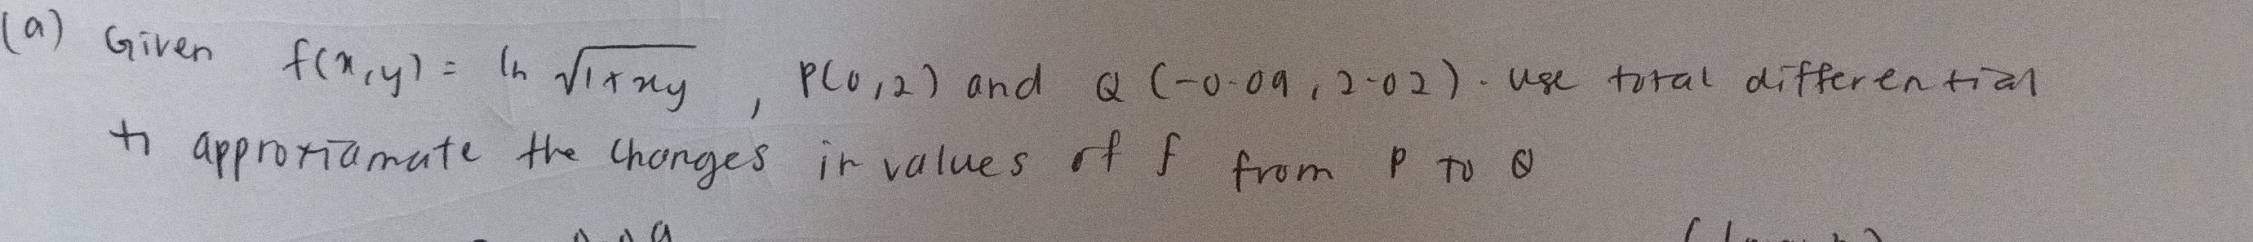 (a) Given f(x,y) = ln √1+xy , P(0,2) and Q (-0.09, 2.02). Use total differential
to approxiamate the changes in values of f from P to Q